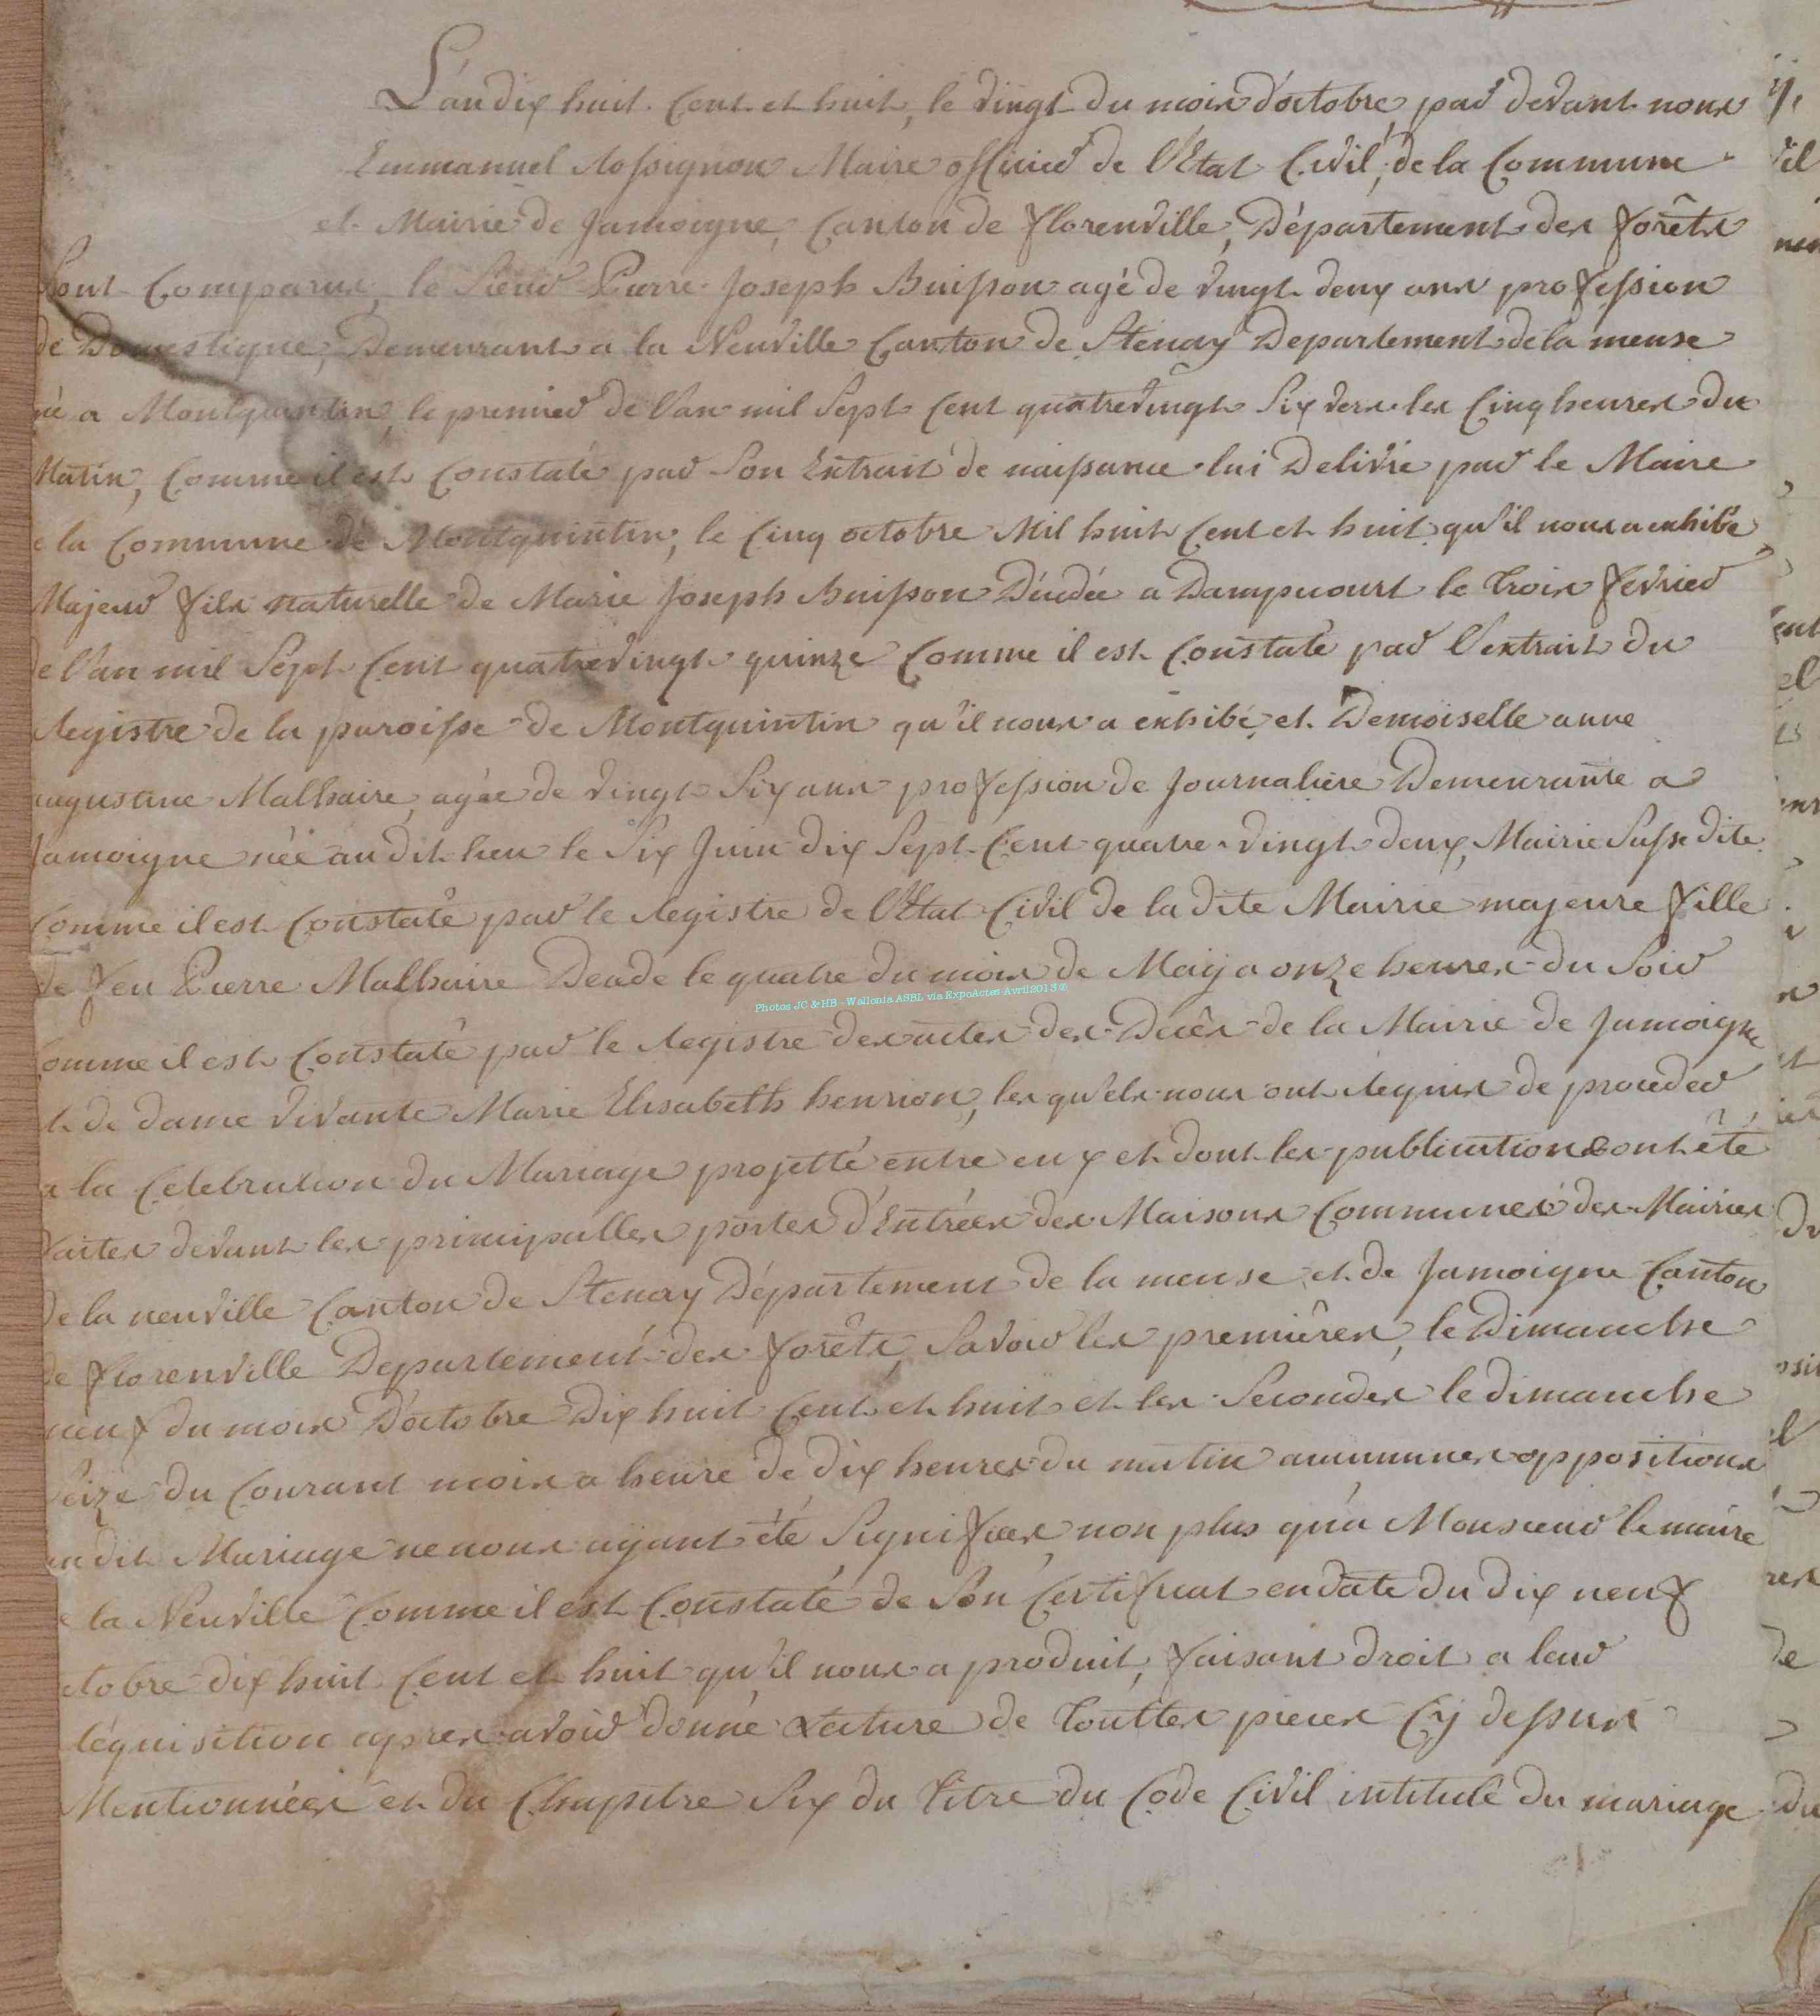 L'an dix huit Cent et huit, le vingt du mois d'octobre par devant nous
Emmanuel Rossignon Maire officier de l'Etat Civil, de la Commune
et Mairie de Jamoigne, Canton de florenville, Département des forêts
Sont Comparus, le Sieur Pierre Joseph Buisson agé de vingt deux ans profession
de Domestique, Demeurant a la Neuville Canton de Stenay Departement de la meuse
né a Montquintin, le premier de l'an mil Sept Cent quatrevingt Six vers les Cinq heures du
Matin, Comme il est Constaté par Son Extrait de naissance lui Delivré par le Maire
la Commune de Montquintin, le Cinq octobre Mil huit Cent et huit qu'il nous a exhibé
Majeur fils naturelle de Marie Joseph Buisson Décédée a Dampicourt le trois fevrier
de l'an mil Sept Cent quatrevingt quinze Comme il est Constaté par l'extrait du
Registre de la paroisse de Montquintin qu'il nous a exhibé, et Demoiselle anne
augustine Malhaire, agée de vingt Six ans profession de Journaliere Demeurante a
Jamoigne née au dit lieu le Six Juin dix Sept Cent quatre vingt deux, Mairie Susse dite
Comme il est Constaté par le Registre de l'Etat Civil de la dite Mairie majeure fille
de feu Pierre Malhaire Decede le quatre du mois de May a onze heures du Soir
Comme il est Constaté par le Registre des actes des Decês de la Mairie de Jamoigne
et de dame vivante Marie Elisabeth henrion, les qu'els nous ont Requis de proceder
a la Celebration du Mariage projetté entre eux et dont les publications ont été
faites devant les principalles portes d'Entrées des Maisons Communes des Mairies
De la neuville Canton de Stenay Département de la meuse et de Jamoigne Canton
de florenville Departement des forêts, Savoir les premiêres, le Dimanche
neuf du mois D'octobre Dix huit Cent et huit et les Secondes le dimanche
Seize du Courant mois a heure de dix heures du matin aucunnes oppositions
au dit Mariage ne nous ayant été Signifiées non plus qu'a Monsieur le maire
la Neuville Comme il est Constaté de Son Certificat en date du dix neuf
octobre dix huit Cent et huit qu'il nous a produit, faisant droit a leur
réquisition apres avoir donné Lecture de touttes pieces Cy dessus
Mentionnées et du Chapitre Six du titre du Code Civil intitulé du mariage
Photos JC & HB - Wallonia ASBL via ExpoActes-Avril2013©